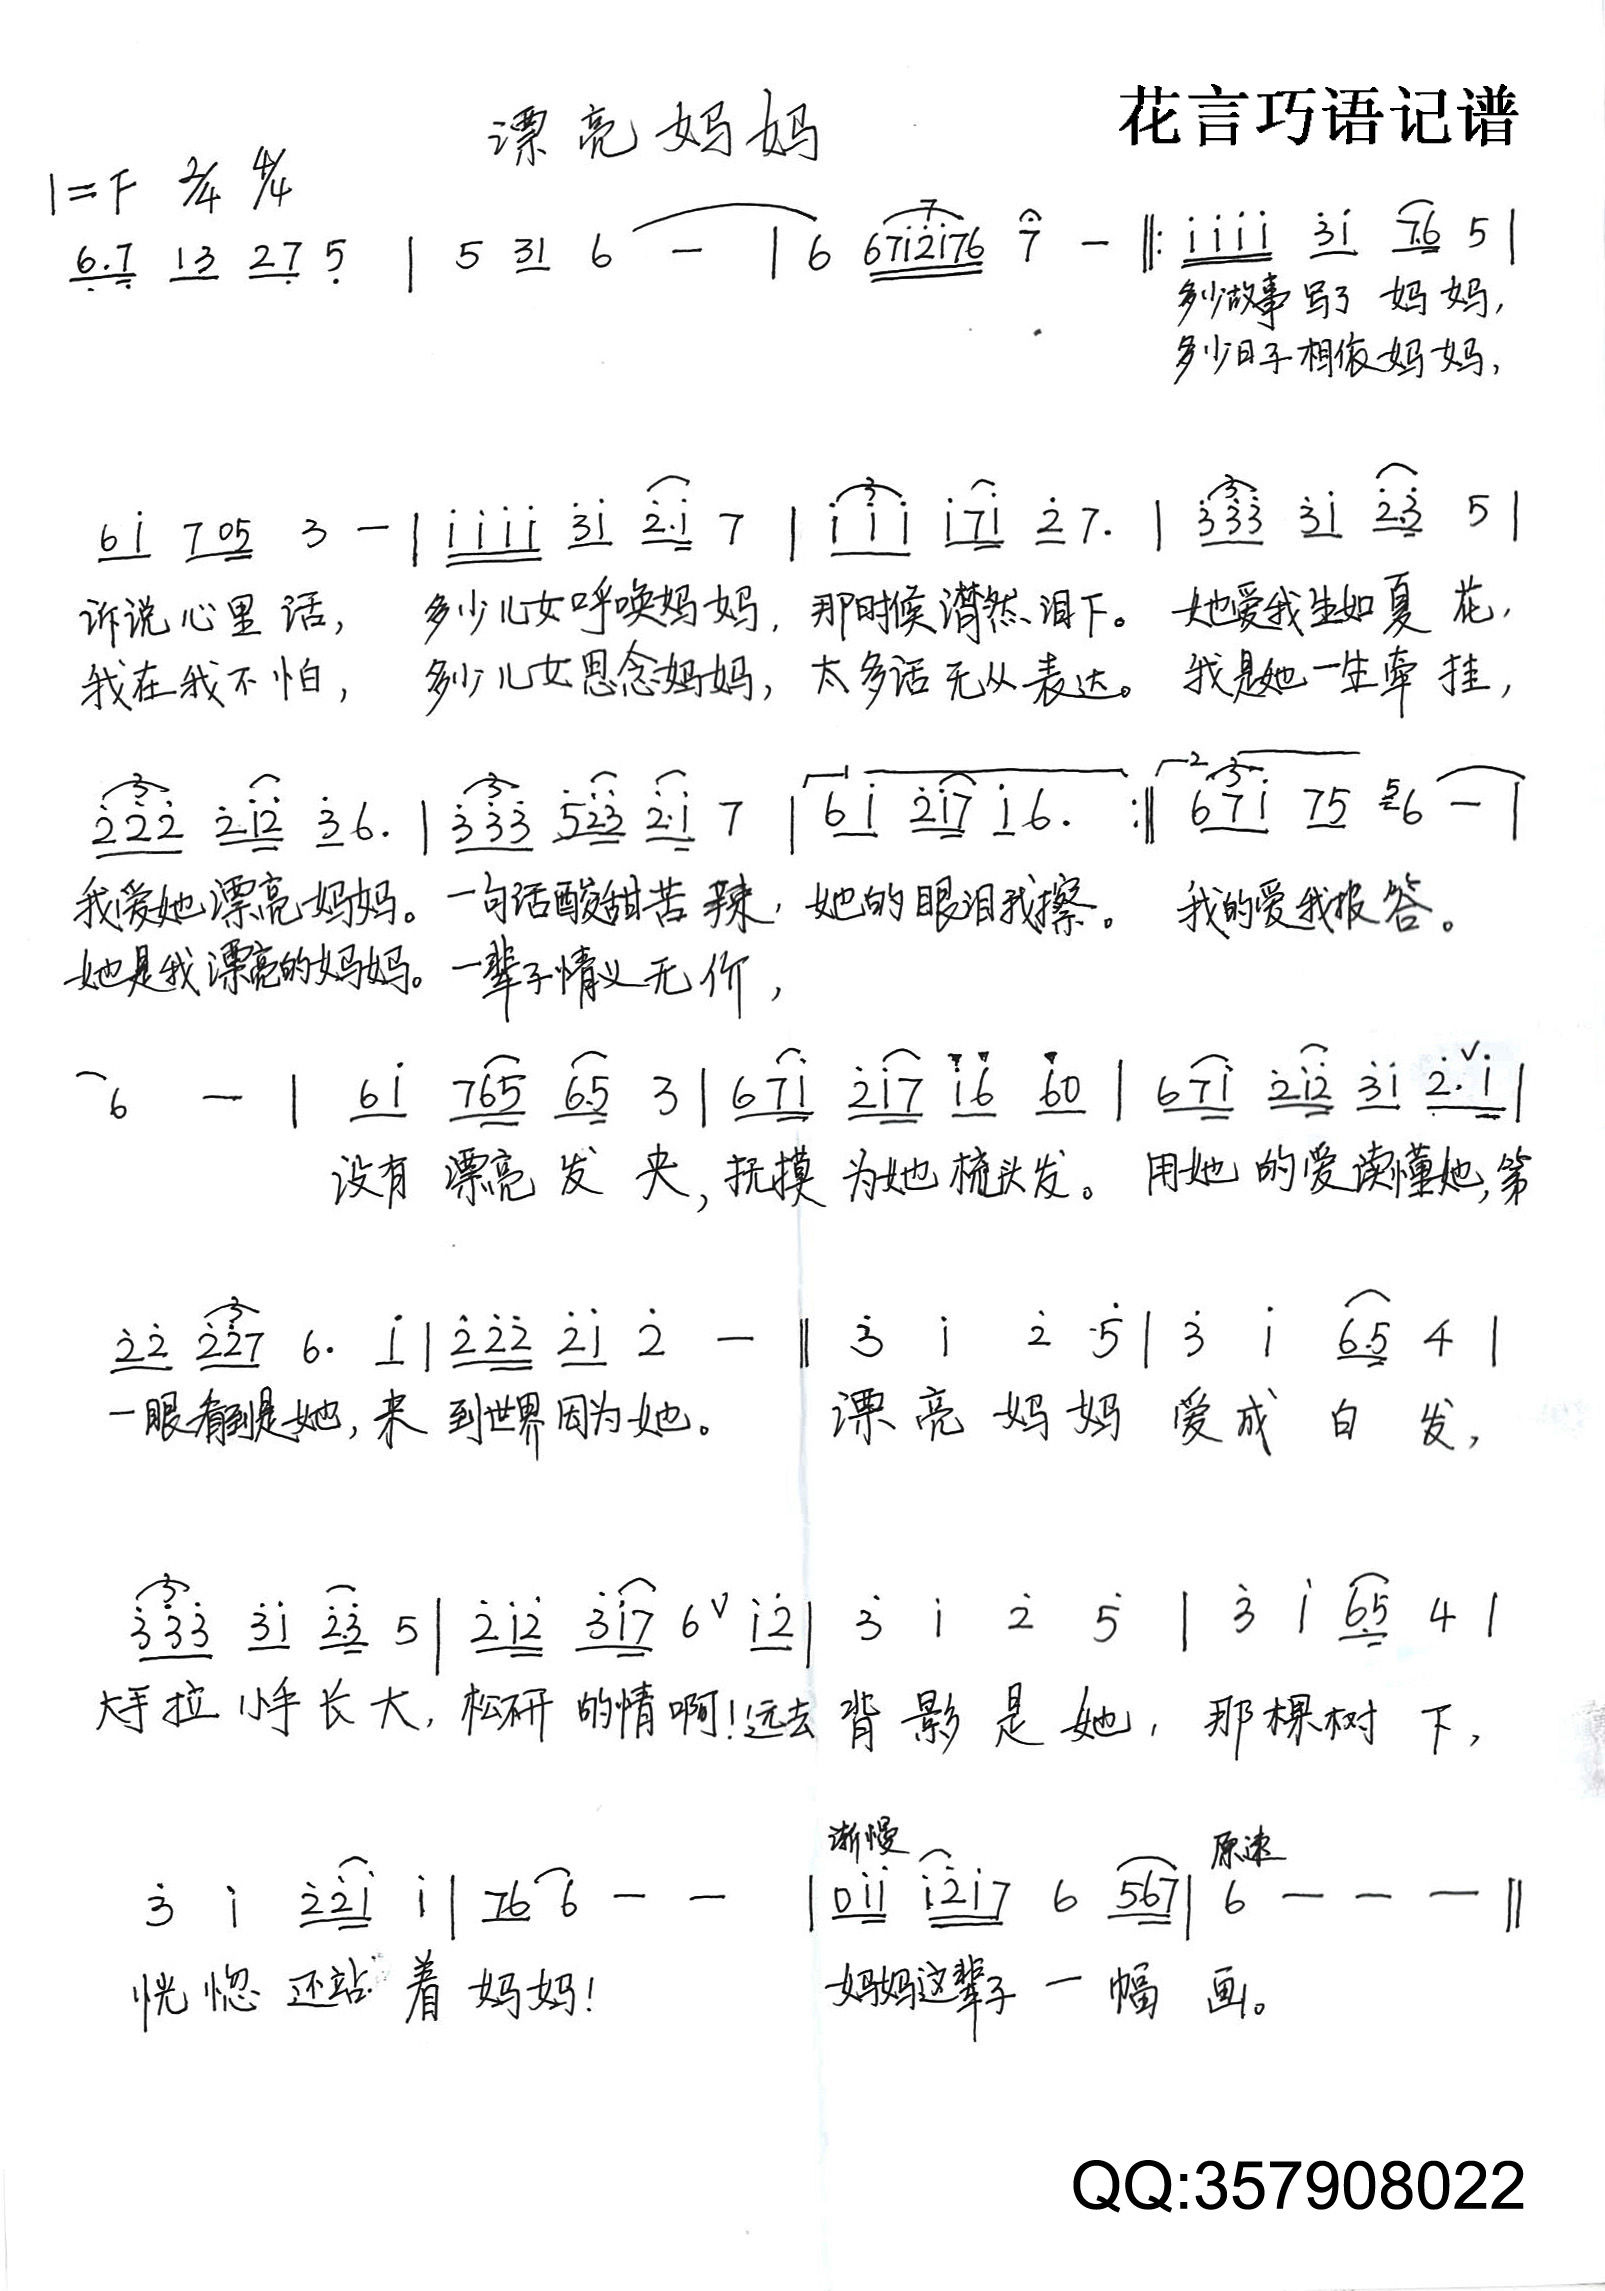 漂亮妈妈
花言巧语记谱
1=F 2/4 4/4
6.7 13 27 5 | 5 31 6 - | 6 67i2i76 7 - ‖: iiii 3i 7.6 5 |
多少故事写了妈妈,
多少日子相依妈妈,
6i 705 3 - | iiii 3i 2.i 7 | iii i7i 2 7. | 333 3i 2.3 5 |
诉说心里话, 多少儿女呼唤妈妈, 那时候潸然泪下。 她爱我生如夏花,
我在我不怕, 多少儿女思念妈妈, 太多话无从表达。 我是她一生牵挂,
222 2i2 3 6. | 333 523 2.i 7 | 1 6i 2i7 i 6. :‖ 2 67i 75 56 - |
我爱她漂亮妈妈。 一句话酸甜苦辣, 她的眼泪我擦。 我的爱我报答。
她是我漂亮的妈妈。 一辈子情义无价,
6 - | 6i 765 6.5 3 | 67i 2i7 i6 60 | 67i 2i2 3i 2.i |
没有漂亮发夹, 抚摸为她梳头发。 用她的爱读懂她, 第
22 227 6. i | 222 2i 2 - ‖ 3 i 2 5 | 3 i 6.5 4 |
一眼看到是她, 来到世界因为她。 漂亮妈妈爱成白发,
333 3i 2.3 5 | 2i2 3i7 6 i2 | 3 i 2 5 | 3 i 6.5 4 |
大手拉小手长大, 的情啊! 远去背影是她, 那棵树下,
渐慢 原速
3 i 22i i | 76 6 - - | 0ii i2i7 6 567 | 6 - - - ‖
恍惚还站着妈妈! 妈妈这辈子一幅画。
QQ:357908022